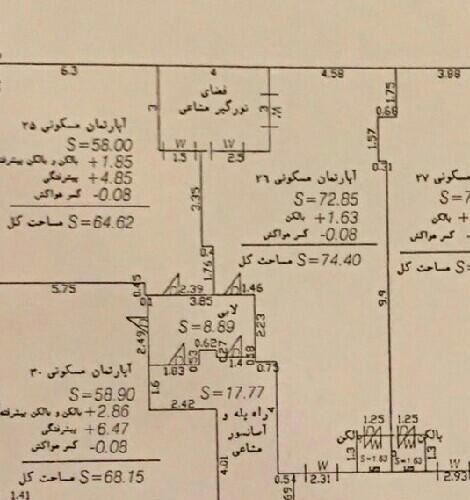 6.3
4
4.58
3.88
فضای
نورگیر مشاعی
3
3
W
1.75
0.66
1.57
0.31
W
W
1.5
2.5
آپارتمان مسکونی ۲۵
S=58.00
بالکن و بالکن پیشرفته +1.85
پیشرفتگی +4.85
کسر هواکش -0.08
مساحت کل S=64.62
آپارتمان مسکونی ۲۶
S=72.85
بالکن +1.63
کسر هواکش -0.08
مساحت کل S=74.40
مسکونی ۲۷
S=7
بالکن +
کسر هواکش -0
مساحت کل S=
3.35
1.76
9.9
5.75
0.45
0.1
2.39
1.46
3.85
لابی
S=8.89
2.23
2.49
0.62
0.27
0.53
1.83
1.4
0.18
0.75
1.6
2.42
S=17.77
راه پله و
آسانسور
مشاعی
4.01
آپارتمان مسکونی ۳۰
S=58.90
بالکن و بالکن پیشرفته +2.86
پیشرفتگی +6.47
کسر هواکش -0.08
مساحت کل S=68.15
1.41
1.25
1.25
بالکن
بالکن
1.3
1.3
W
W
S=1.63
S=1.63
0.54
W
2.31
W
2.93
69